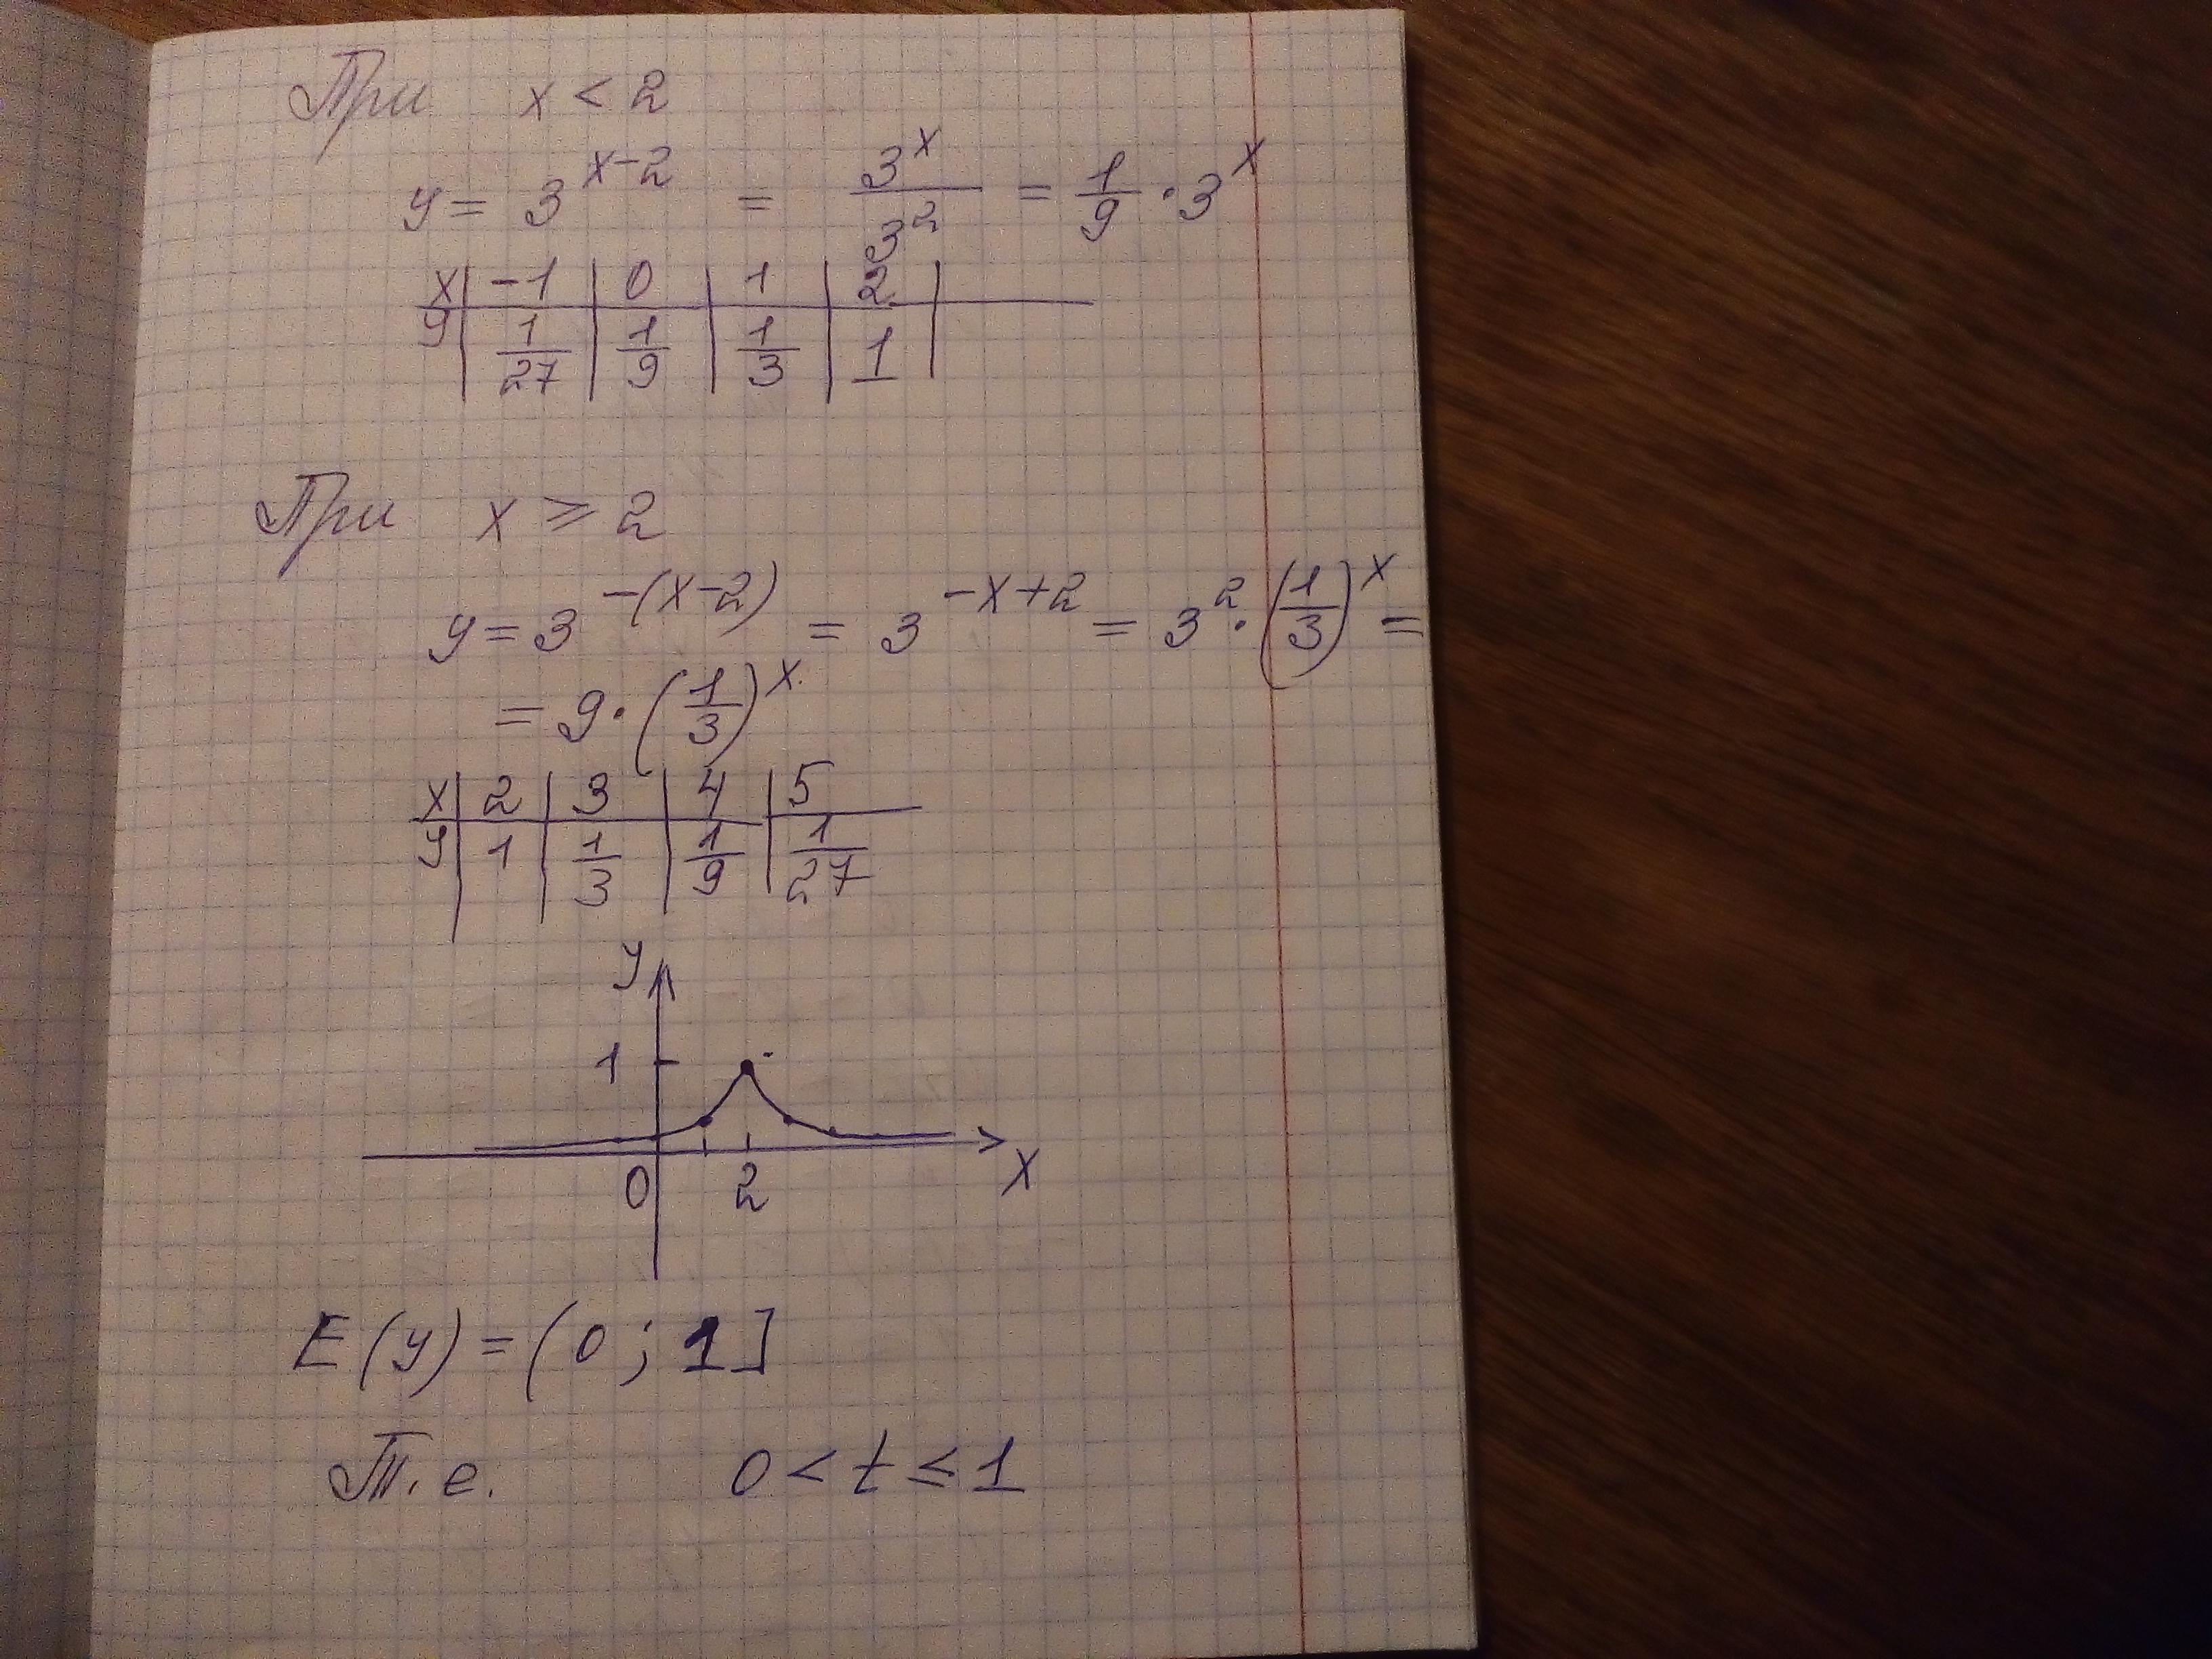 При x < 2
y = 3^{x-2} = \frac{3^x}{3^2} = \frac{1}{9} · 3^x
x | -1 | 0 | 1 | 2 |
y | \frac{1}{27} | \frac{1}{9} | \frac{1}{3} | 1 |
При x ⩾ 2
y = 3^{-(x-2)} = 3^{-x+2} = 3^2 · (\frac{1}{3})^x =
= 9 · (\frac{1}{3})^x.
x | 2 | 3 | 4 | 5
y | 1 | \frac{1}{3} | \frac{1}{9} | \frac{1}{27}
y
1
0 2 x
E(y) = (0; 1]
Т.е. 0 < t ≤ 1